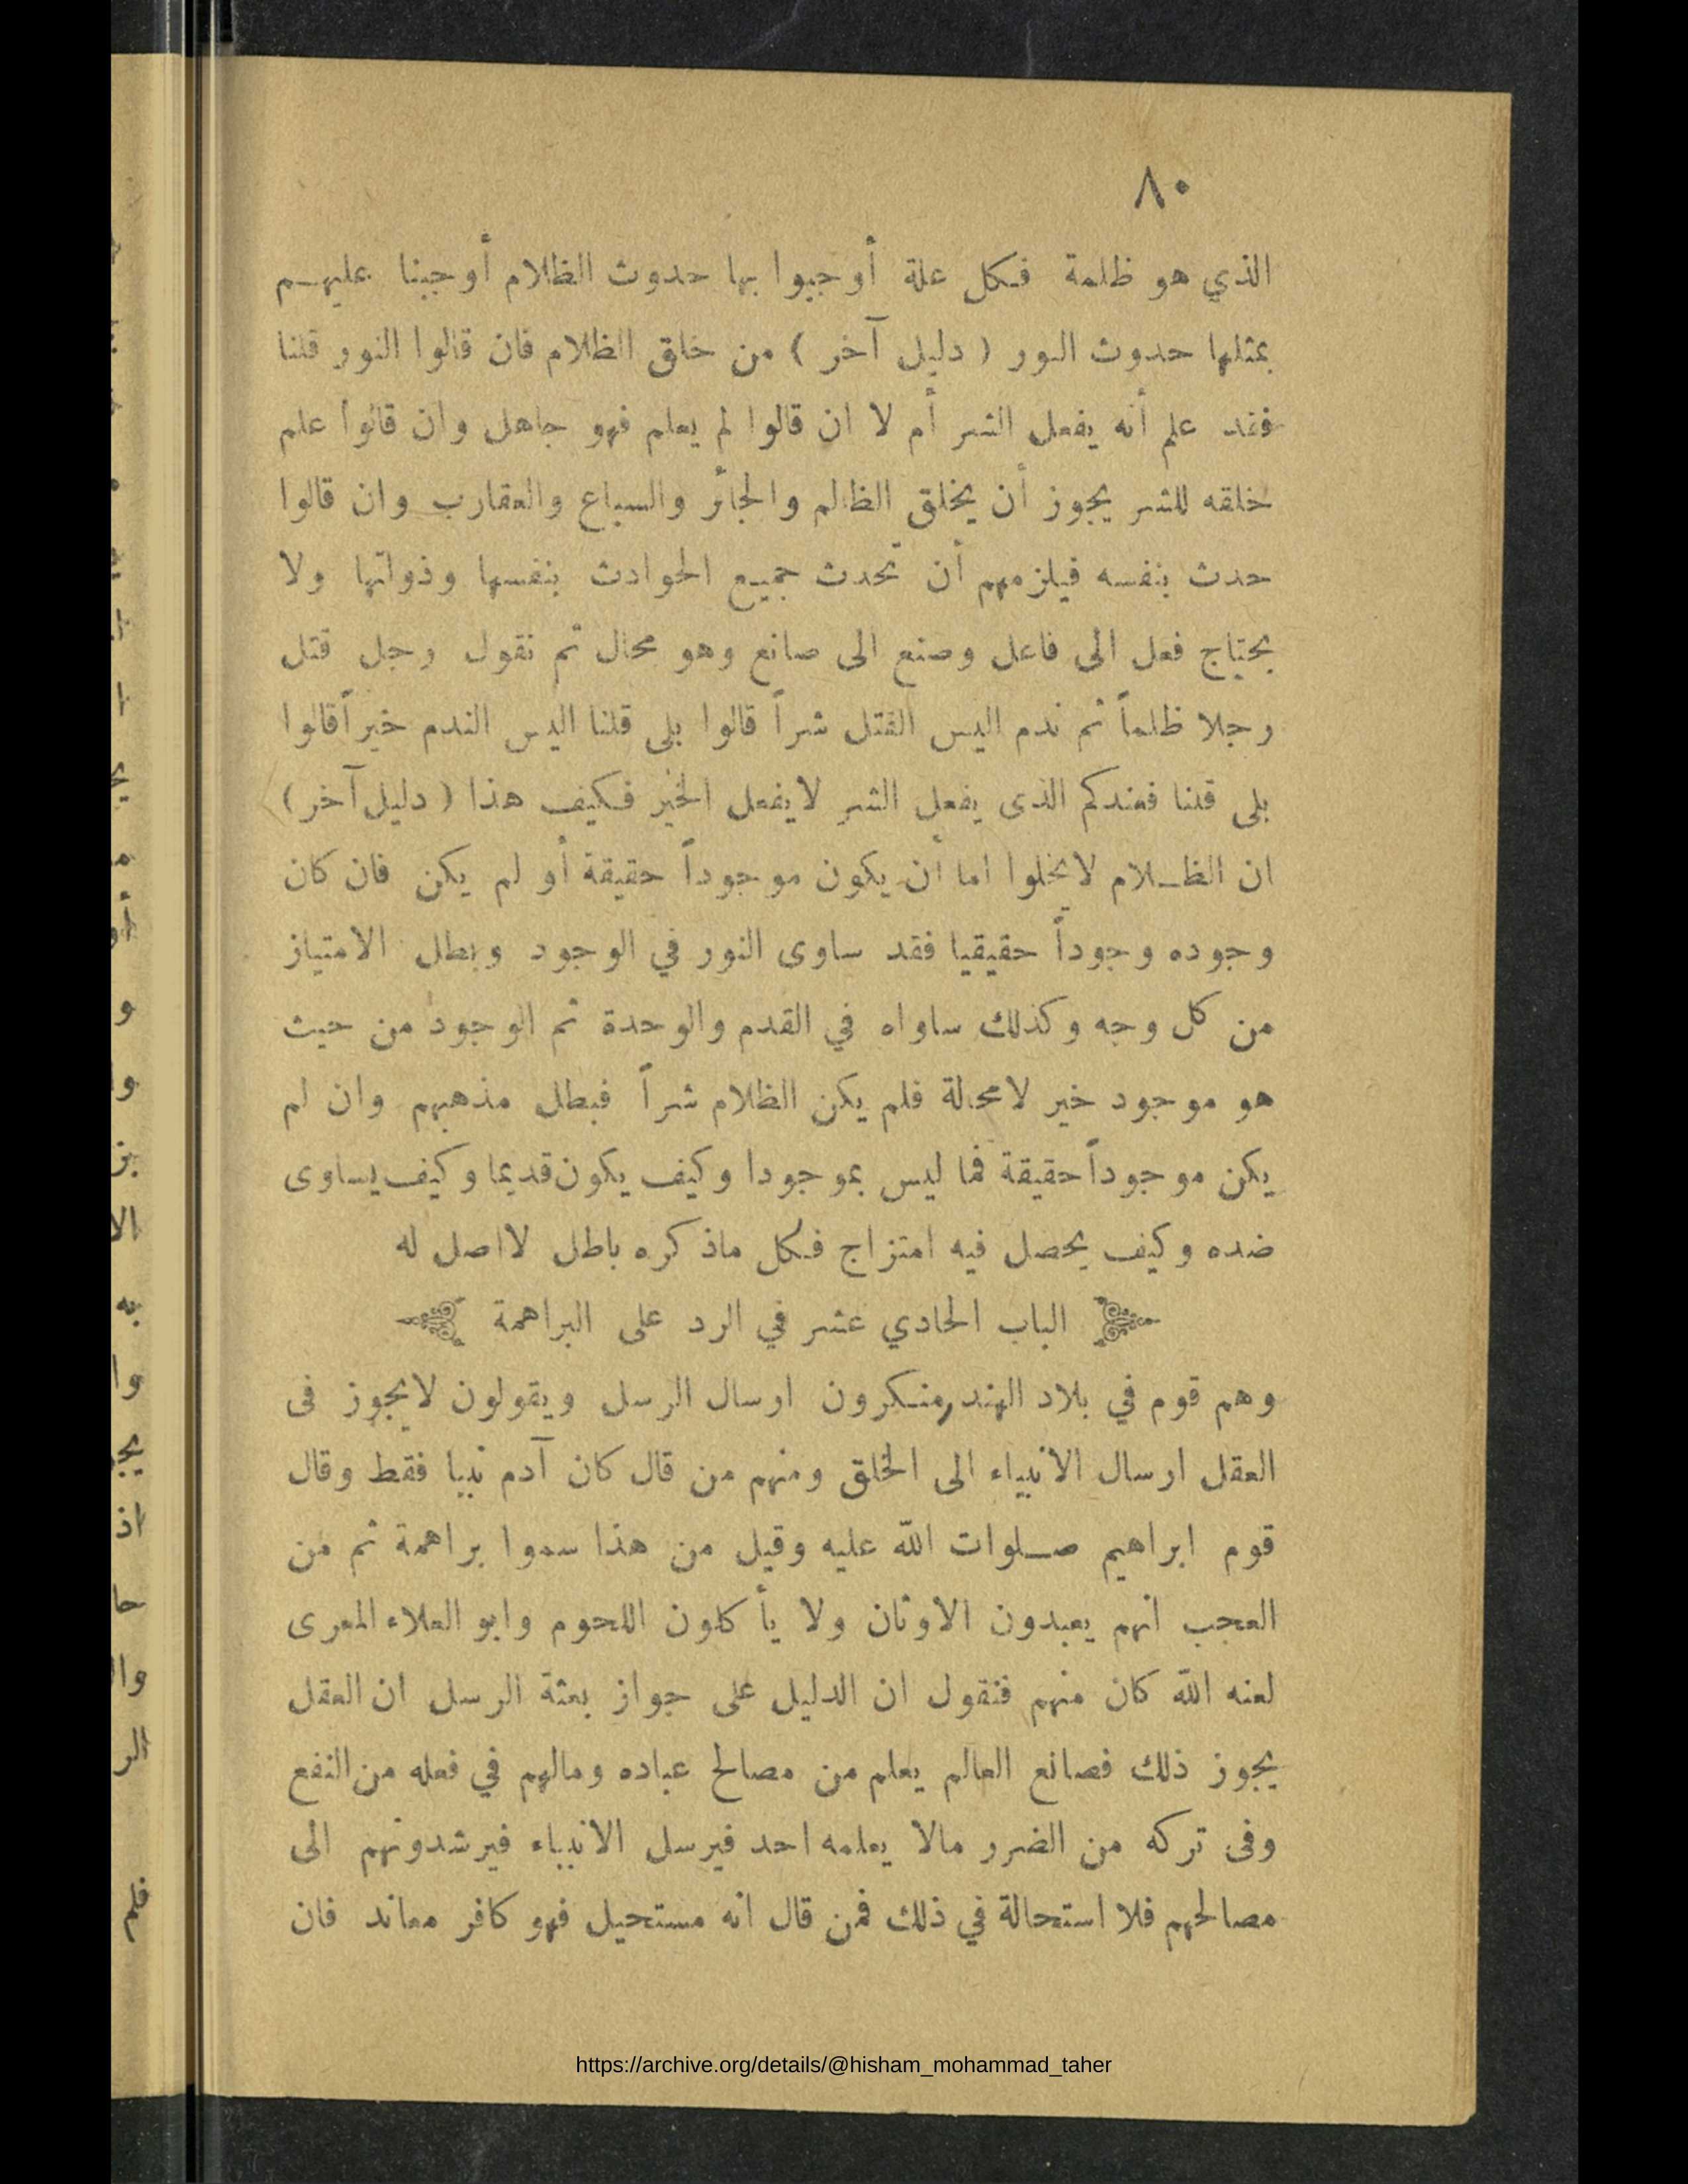 ٨٠
الذي هو ظلمة فكل علة أوجبوا بها حدوث الظلام أوجبنا عليهم
بمثلها حدوث النور ( دليل آخر ) من خلق الظلام فان قالوا النور قلنا
فقد علم أنه يفعل الشر أم لا ان قالوا لم يعلم فهو جاهل وان قالوا علم
خلقه للشر يجوز أن يخلق الظالم والجائر والسباع والعقارب وان قالوا
حدث بنفسه فيلزمهم أن تحدث جميع الحوادث بنفسها وذواتها ولا
يحتاج فعل الى فاعل وصنع الى صانع وهو محال ثم نقول رجل قتل
رجلا ظلماً ثم ندم اليس القتل شراً قالوا بلى قلنا اليس الندم خيراً قالوا
بلى قلنا فعندكم الذى يفعل الشر لايفعل الخير فكيف هذا ( دليل آخر )
ان الظلام لايخلوا اما أن يكون موجوداً حقيقة أو لم يكن فان كان
وجوده وجوداً حقيقيا فقد ساوى النور في الوجود وبطل الامتياز
من كل وجه وكذلك ساواه في القدم والوحدة ثم الوجود من حيث
هو موجود خير لامحالة فلم يكن الظلام شراً فبطل مذهبهم وان لم
يكن موجوداً حقيقة فما ليس بموجودا وكيف يكون قديما وكيف يساوى
ضده وكيف يحصل فيه امتزاج فكل ماذكره باطل لااصل له
الباب الحادي عشر في الرد على البراهمة
وهم قوم في بلاد الهند منكرون ارسال الرسل ويقولون لايجوز فى
العقل ارسال الانبياء الى الخلق ومنهم من قال كان آدم نبيا فقط وقال
قوم ابراهيم صلوات الله عليه وقيل من هذا سموا براهمة ثم من
العجب انهم يعبدون الاوثان ولا يأكلون اللحوم وابو العلاء المعرى
لعنه الله كان منهم فنقول ان الدليل على جواز بعثة الرسل ان العقل
يجوز ذلك فصانع العالم يعلم من مصالح عباده ومالهم في فعله من النفع
وفى تركه من الضرر مالا يعلمه احد فيرسل الانبياء فيرشدونهم الى
مصالحهم فلا استحالة في ذلك فمن قال انه مستحيل فهو كافر معاند فان
https://archive.org/details/@hisham_mohammad_taher